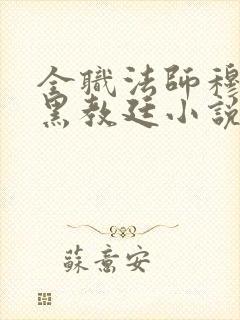 全職法師穆
黑教廷小說
蘇意安